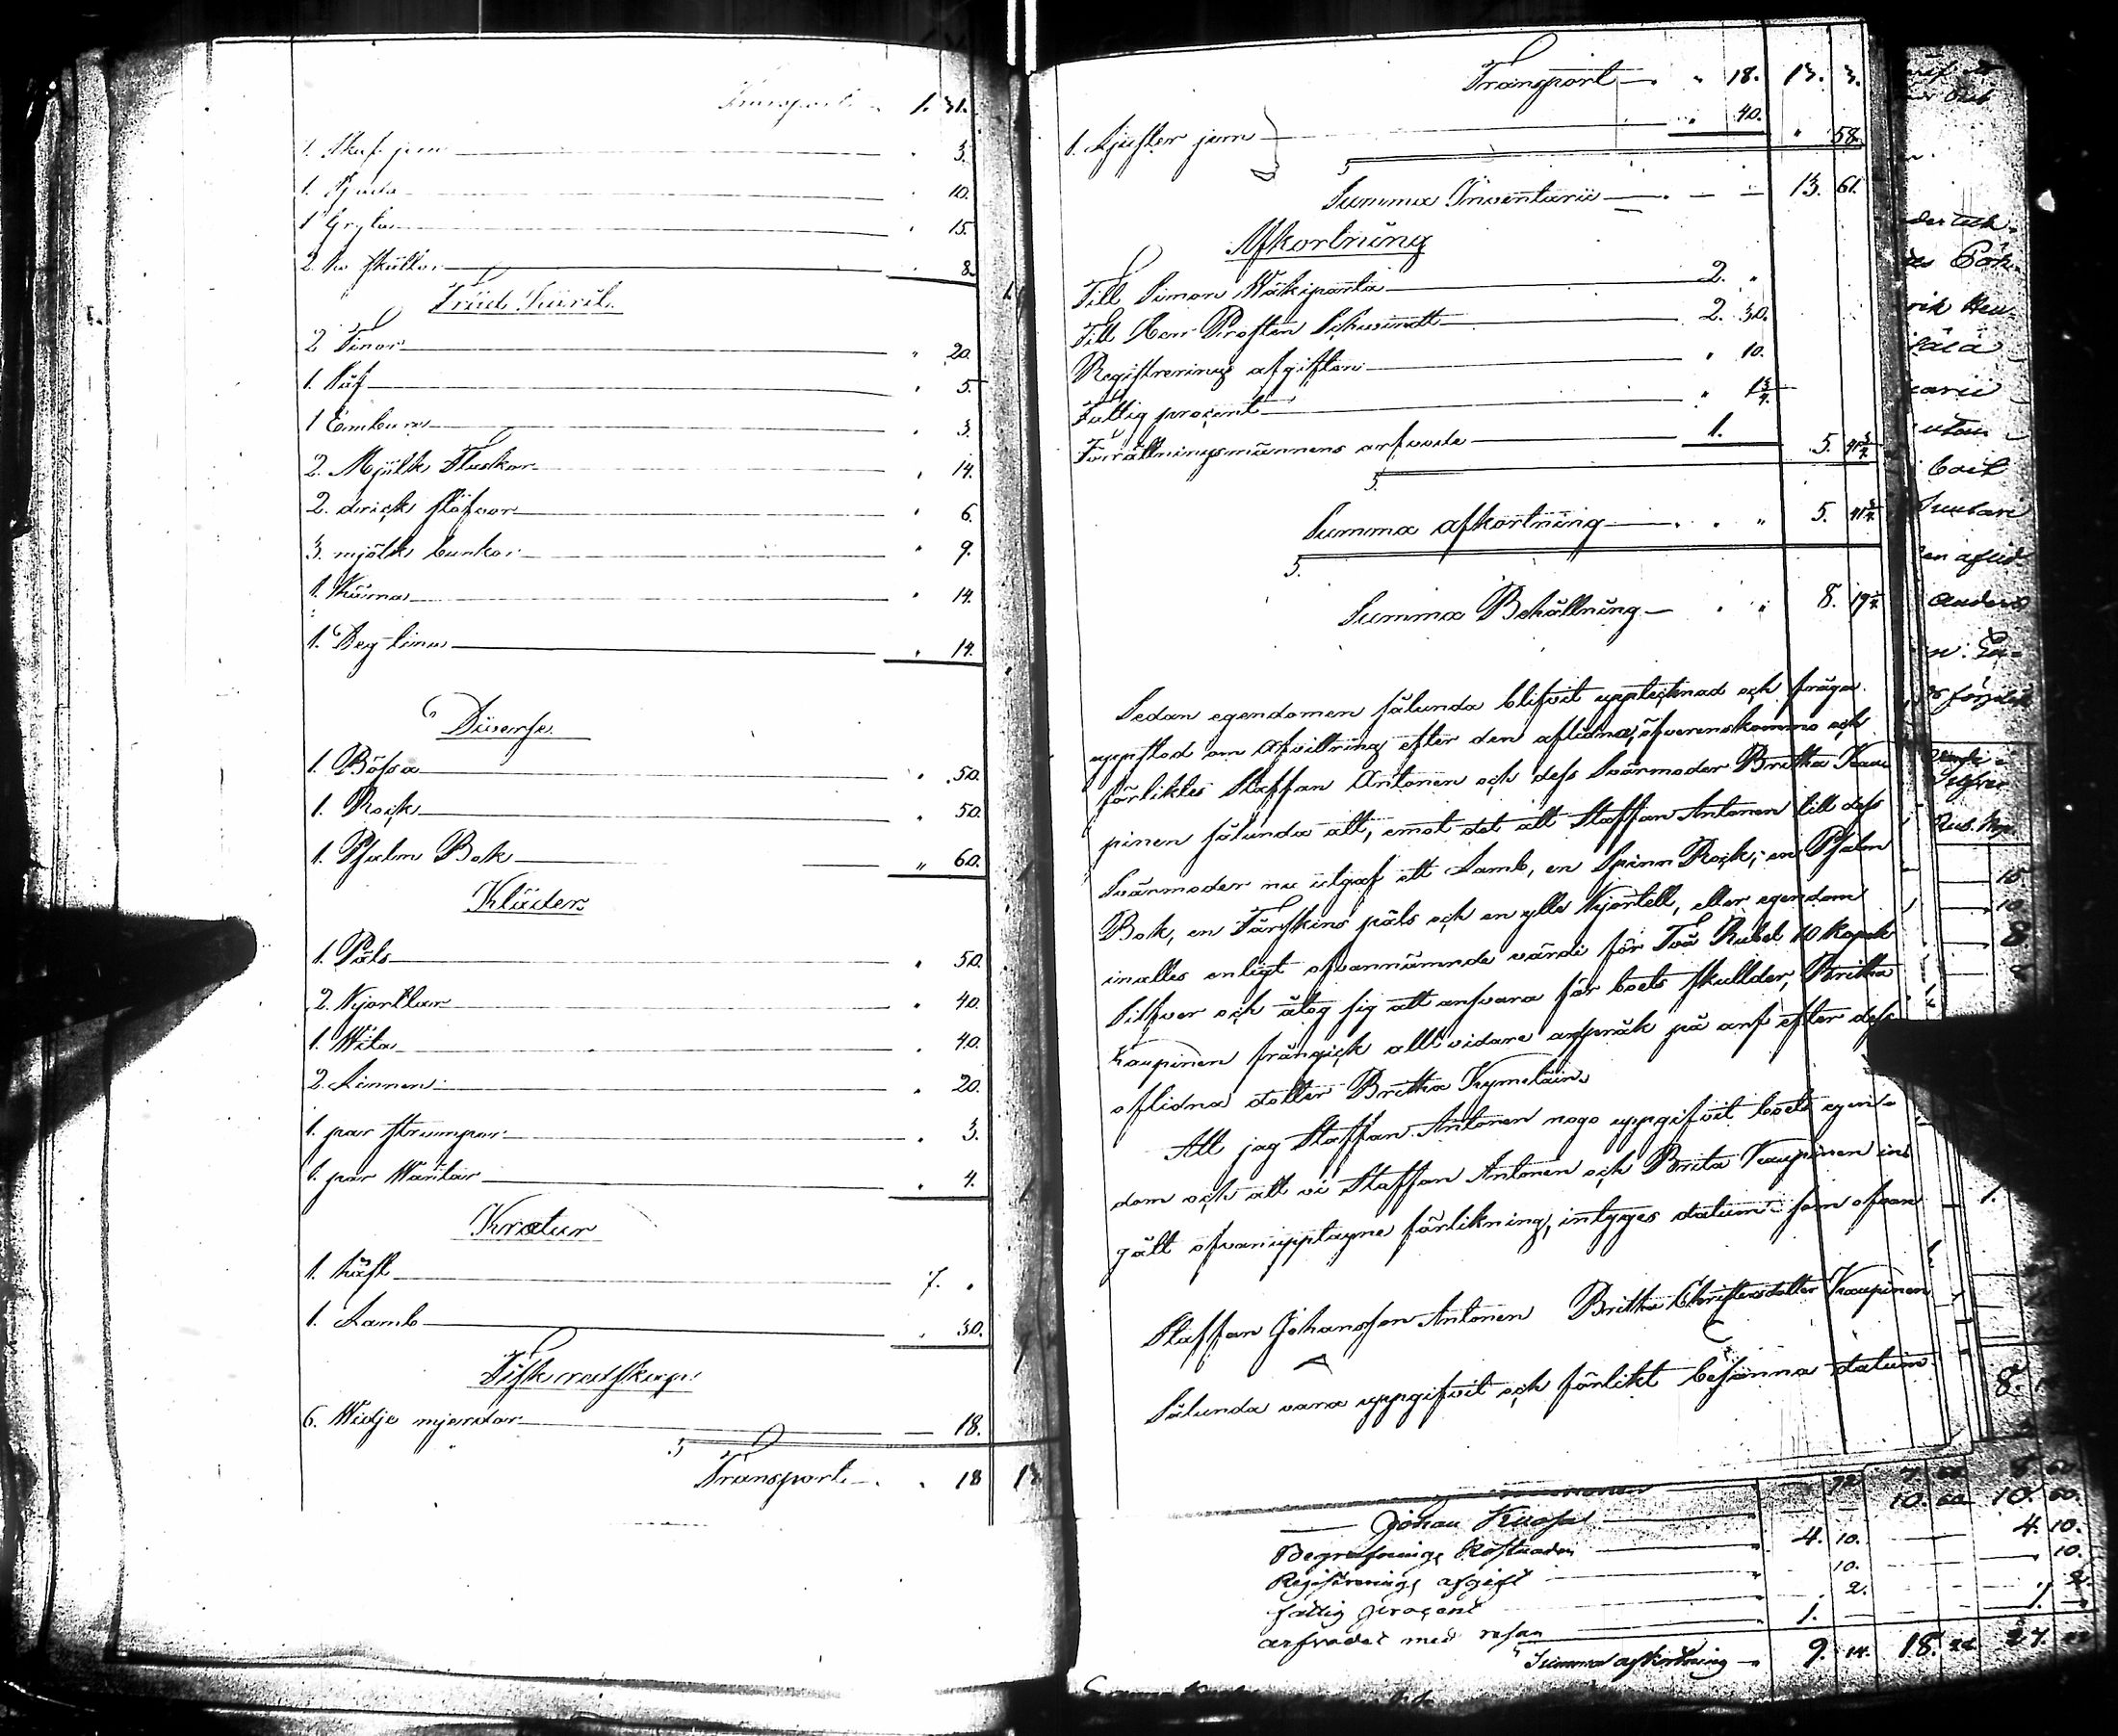 Transport 1. 31.
1. Skaf jern " 3.
1. Spada " 10.
1 Gryta " 15.
2. ko skällor " 8.
Träd Käril
2 Tinor " 20.
1. Såf " 5.
1 Embura " 3.
2. Mjölk Flaskor " 14.
2. drick stäfvor " 6.
3. mjölk bunkar " 9.
1. Kärna " 14.
1. Deg tina " 14.
Diverse
1. Bössa " 50.
1. Rock " 50.
1. Psalm Bok " 60.
Kläder
1. Päls " 50.
2. Kjortlar " 40.
1. " 40.
2. Linnen " 20.
1. par strumpor " 3.
1. par Wantar " 4.
Kræatur
1. häst 7. "
1. Lamb " 30.
Fisk redskap
6. Widje mjerdor — 18.
Transport " 18
Transport " 18. 13. 3.
1. Ljuster jern " 40. " 58.
Summa Inventarii — — 13. 61.
Afkortning
Till Simon Mäkiparta 2. "
Till Herr Prosten Schwindt 2. 30.
Registrerings afgiften " 10.
Fattig procent " 1 3/4.
Förrättningsmännens arfvode 1. 5. 41 3/4
Summa afkortning " " 5. 41 3/4
Summa Behållning " " 8. 19 1/4
Sedan egendomen sålunda blifvit uppteknad och fråga
uppstod om afvittring efter den aflidna, öfverenskommo och
förliktes Staffan Antonen och dess Svärmoder Britha Kau
pinen sålunda att, emot det att Staffan Antonen till dess
Svärmoder nu utgaf ett Lamb, en Spinn Rock, en Psalm
Bok, en Fårskins päls och en ylle Kjortell, eller egendom
inalles enligt ofvannämnde värde för Två Rubel 10 Kopek
Silfver och åtog sig att ansvara för boets skullder, Britha
Kaupinen frångick allt vidare anspråk på arf efter dess
aflidna dotter Britha Kymeläin.
Att jag Staffan Antonen noga uppgifvit boets egen-
dom och att vi Staffan Antonen och Brita Kaupinen in
gått ofvanupptagne förlikning, intyges datum som ofvan
Staffan Johansson Antonen Britha Christersdotter Kaupinen
Sålunda vara uppgifvit och förlikt besanna datum
Johan 10. 60. 10. 60.
Begrafnings Kostnaden 4. 10. 4. 10.
Registrerings afgift 10. 10.
fattig procent 2. 2.
arfvodet med resan 1. — 1. —
Summa afkortning 9. 14. 18. 27.